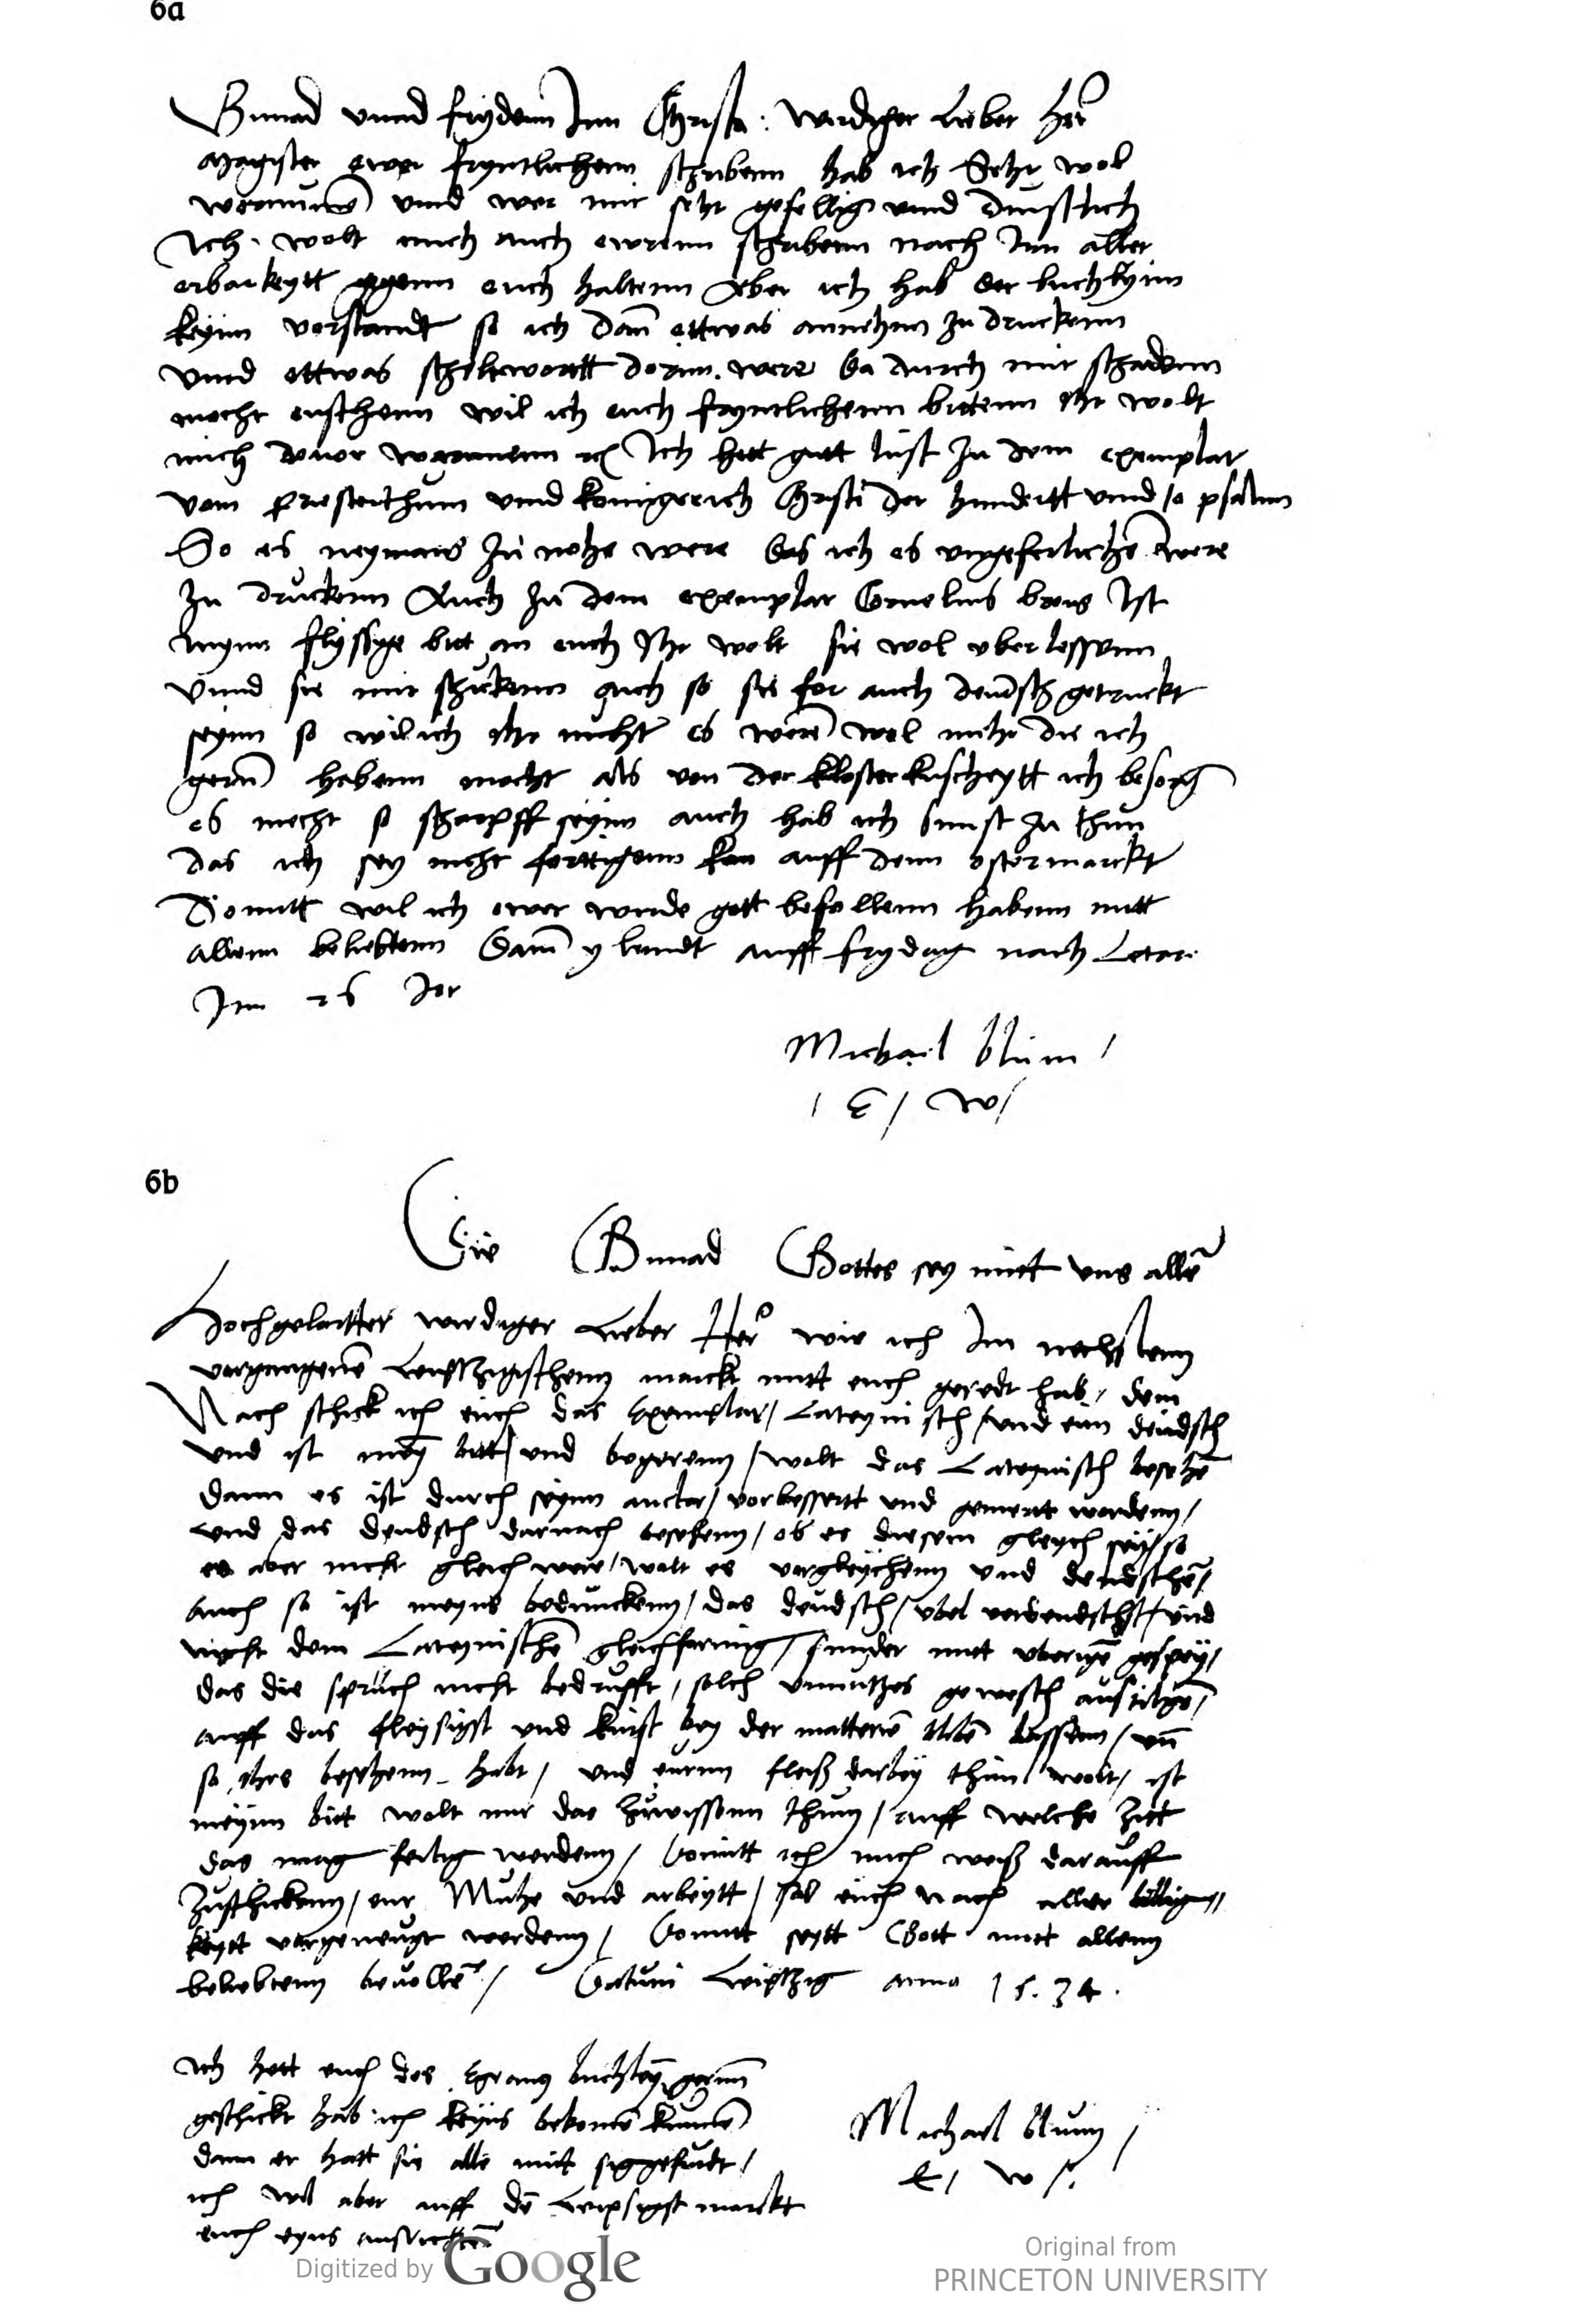 6a
Gnnad vnnd frydenn Inn Christo: wirdiger Lieber Her
Magister ewer fryntlichenn schribenn hab ich Sehr wol
vornumē vnnd wer mir sehr gefellig vnnd dinstlich
Ich wolt mich auch ewrenn schribenn nach Inn aller
erbarkeytt gegenn euch haltenn Aber ich hab der buchlyinn
keyinn vorstandt so ich dañ ettwas annehm zu druckenn
vnnd ettwas scheltwortt dorinn were da durch mir schadenn
mocht enstehenn wil ich euch fryntlichenn bittenn Ihr wolt
mich douor warnnenn Ich hett gutt lust zu dem exemplar
vom Priesterthum vnnd konigreich Christi der hundertt vnnd 10 psalm
So es neymans zu nohe were das ich es vngeferlichē were
zu druckenn Auch zu dem exemplar Cornelius Ist
mynn flyssyge bitt an euch Ihr wolt sie wol vberlessenn
vnnd sie mir schickenn auch so sie for auch deudsch getruckt
seyinn so wil ich ihr nicht es werē wol mehr die ich
gernn habenn mocht als von der klosterkuscheytt ich besorg
es mocht so scharpff seyinn auch hab ich sunst zu thun
das ich sey nicht ferttigenn kan auff denn ostermarckt
Domitt wil ich ewer wirde gott befollenn habenn mitt
allenn beliebtenn auff frydag nach Letar
Im 26 Jor
Michael blum /
/ E / W /
6b
Die Gnnad Gottes sey mitt vns allē
Hochgelartter wirdiger Lieber Her wie ich Im nechstenn
vorgangenē Leiptzigischenn marckt mitt euch geredt hab, dem
Nach schick ich euch das Exemplar / Lateyinisch / vnd ein deudsch
vnd ist mey bitt / vnd begerenn / wolt das Lateynisch besehē
dann es ist durch seynn auctor / vorbessertt vnd gemertt wordenn /
vnd das deudsch darnach besehenn / ob es diesem gleych sey / so
es aber nicht gleich were / wolt es vorgleychenn vnd deudschē /
auch so ist meyns beduncken / das deudsch / vbel vordeudscht / vnd
nicht dem Lateynischē gleichformig / sunder mitt vberigē gesprey /
das die spruch nicht bedrifft, solch vnnutzes gewesch austilgē
auff das fleysigst vnd kurtzt bey der matteriē blibē lassenn / vn̄
so ihrs besehenn habt / vnd eurnn fleiß darbey thun wolt / ist
meyinn bitt wolt mir das zuwissenn thun / auff welche zitt
das mag fertig werdenn / domitt ich mich weiß darauff
zuschickenn / eur Muhe vnd arbeytt / sol euch nach aller billig
keytt vorgenugt werdenn / domitt seytt Gott mitt allenn
beliebtenn beuollē / Datum Leiptzig anno 1534.
Ich hett euch des Egranus buchleyn gernn
geschickt hab ich keyns bekomē kunnē
dann er hatt sie alle mitt
ich wil aber auff dē Leipsigst marckt
euch eyns ausrichtenn
Michael blum /
E / W /.
Digitized by Google
Original from
PRINCETON UNIVERSITY